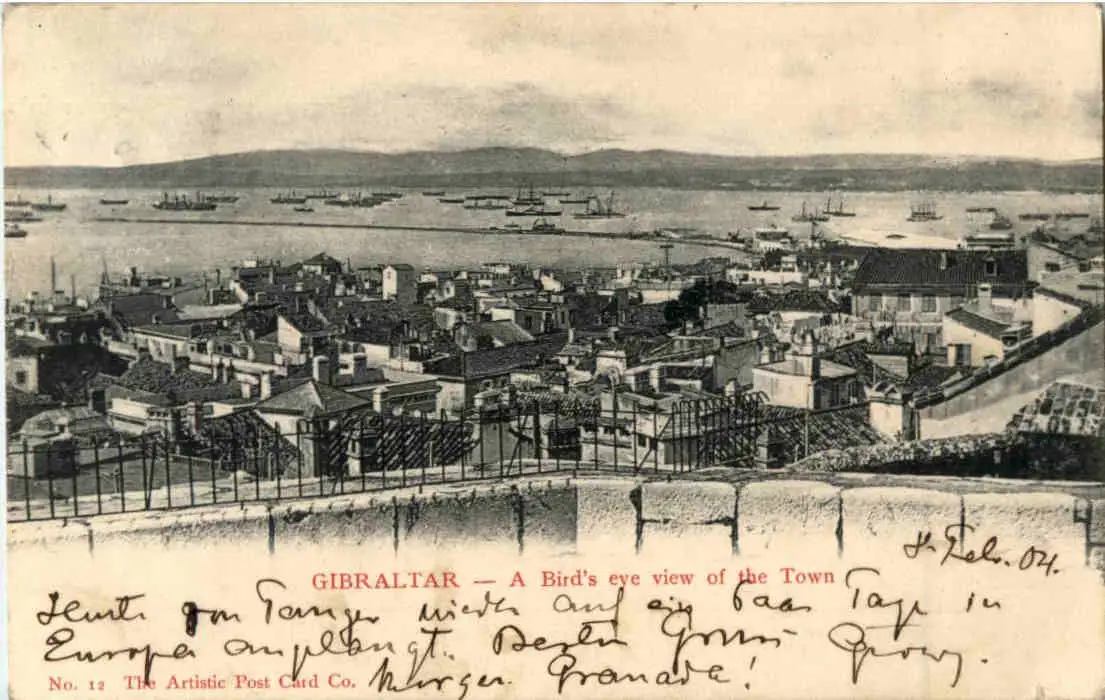 Feb. 04.
GIBRALTAR — A Bird's eye view of the Town
Heute von Tanger wieder auf ein Paar Tage in
Europa angelangt. Besten Gruss
Morgen Granada!
No. 12 The Artistic Post Card Co.